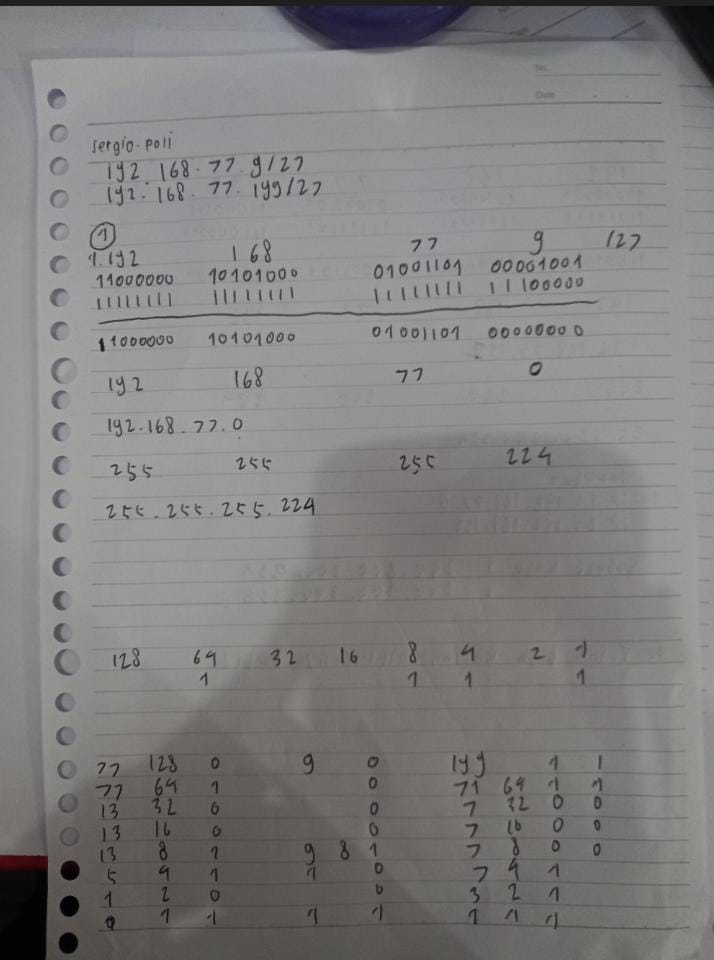 No.
Date
sergio.poli
192.168.77.9/27
192.168.77.199/27
1
1.192 168 77 9 /27
11000000 10101000 01001101 00001001
11111111 11111111 11111111 11100000
11000000 10101000 01001101 00000000
192 168 77 0
192.168.77.0
255 255 255 224
255.255.255.224
128 64 32 16 8 4 2 1
1 1 1 1
77 128 0 9 0 199 1 1
77 64 1 0 71 64 1 1
13 32 0 0 7 32 0 0
13 16 0 0 7 16 0 0
13 8 1 9 8 1 7 8 0 0
5 4 1 1 0 7 4 1
1 2 0 0 3 2 1
0 1 1 1 1 1 1 1